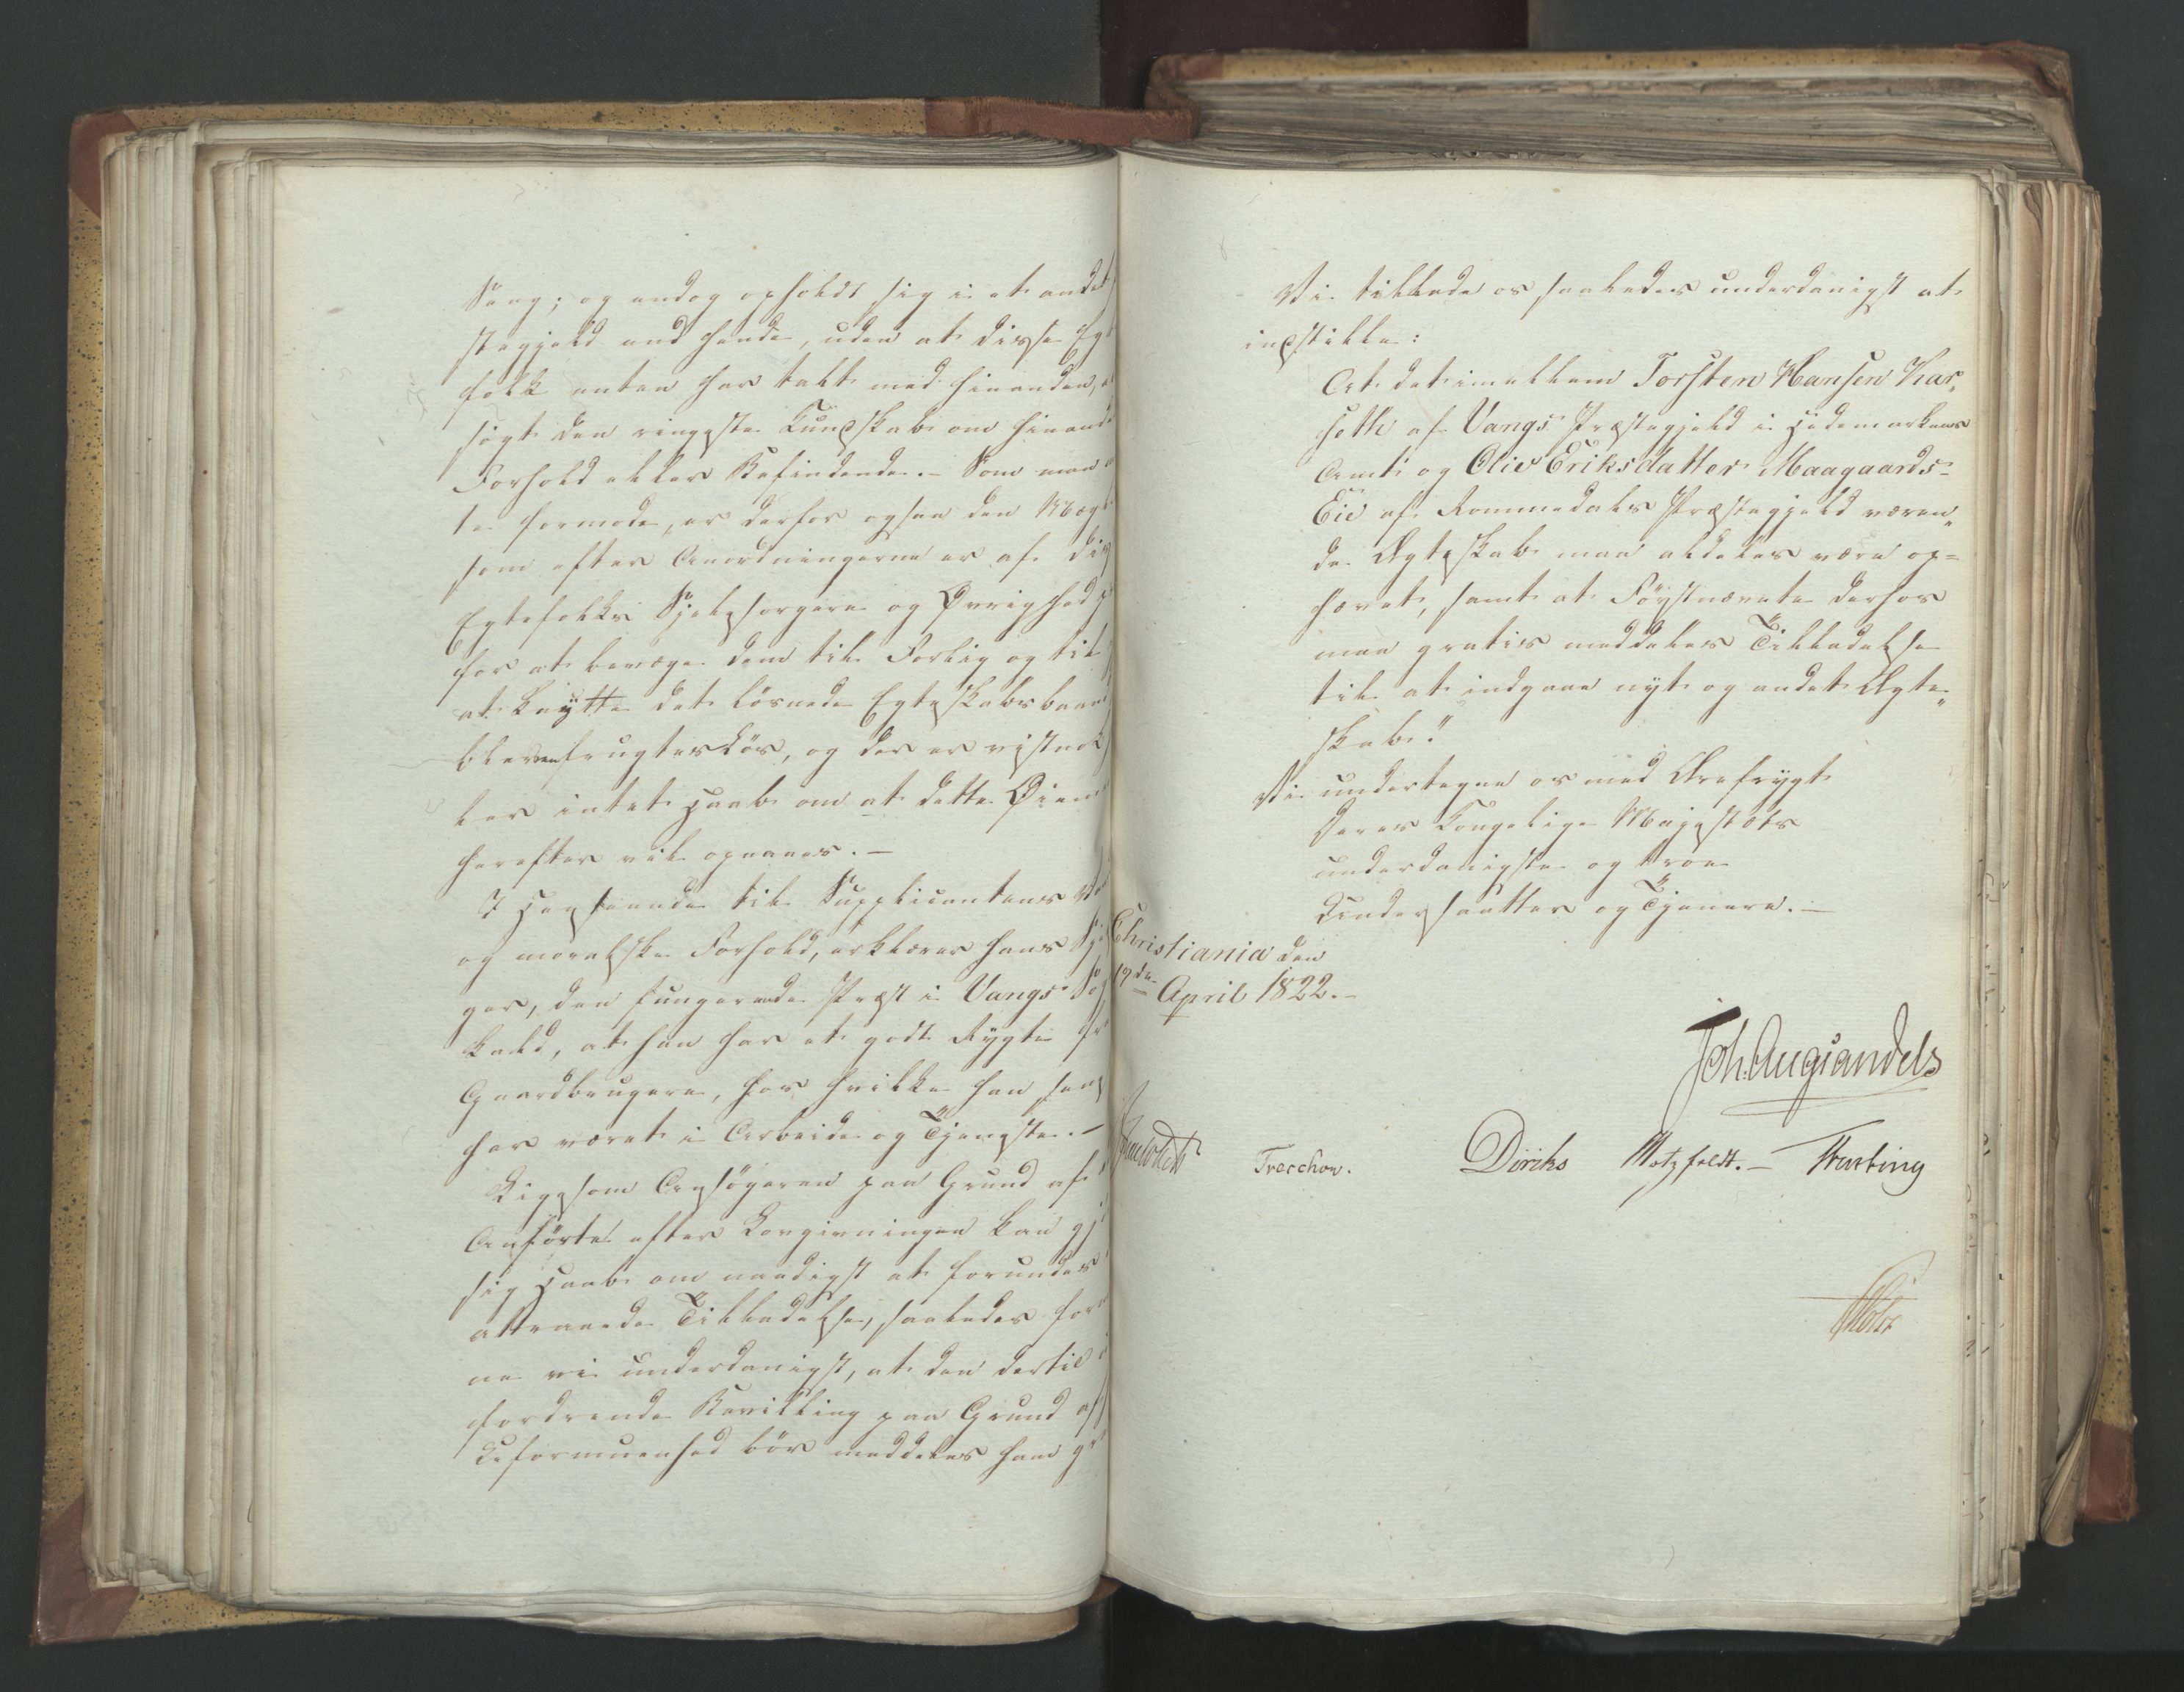 Seng; og endog opholdt sig i et andet
stegjeld end hende, uden at disse Egt
folk enten har talt med hinanden,
søgt den ringeste Kundskab om hinand
Forhold eller Befindende. – Som man
te formode, er derfor ogsaa den Mægl
som efter Anordningerne er af dis
Egtefolks Sjelesørgere og Øvrighed
for at bevæge dem til Forlig og til
at knytte det løsnede Egteskabsbaand
bleven frugtesløs, og der er vistnok
ler intet Haab om at dette Øiem
herefter vil opnaaes. –
I Henseende til Supplicantens
og moralske Forhold, erklærer hans Sj
ger, den fungerende Præst i Vangs So
kald, at han har et godt Rygte
Gaardbrugere, hos hvilke han
har været i Arbeide og Tjeneste. –
Ligesom Ansøgeren paa Grund af
Anførte efter Lovgivningen kan gj
sig Haab om naadigst at forundes
attraaede Tilladelse, saaledes for
ne vi underdanigst, at den dertil
fordrende Bevilling paa Grund af
Uformuenhed bør meddeles ham gr
Vi tillade os saaledes underdanigst at
indstille:
At det imellem Torsten Hansen Kar„
seth af Vangs Præstegjeld i Hedemarkens
Amt og Olie Eriksdatter Maagaards-
Eie af Rommedals Præstegjeld væren„
de Ægteskab maa aldeles være op=
hævet, samt at Førstnævnte derhos
maa gratis meddeles Tilladelse
til at indgaae nyt og andet Ægte„
skab."
Vi undertegne os med Ærefrygt
Deres Kongelige Majestæts
underdanigste og troe
Undersaatter og Tjenere. –
Christiania den
19de April 1822. –
Joh. Aug. Sandels
Treschow.
Diriks Motzfeldt. –
Holst